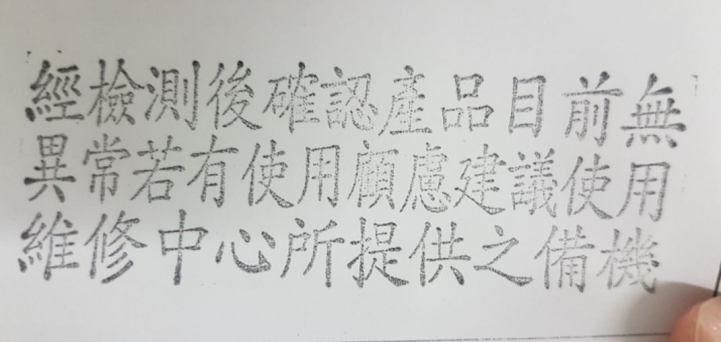 經檢測後確認產品目前無
異常若有使用顧慮建議使用
維修中心所提供之備機